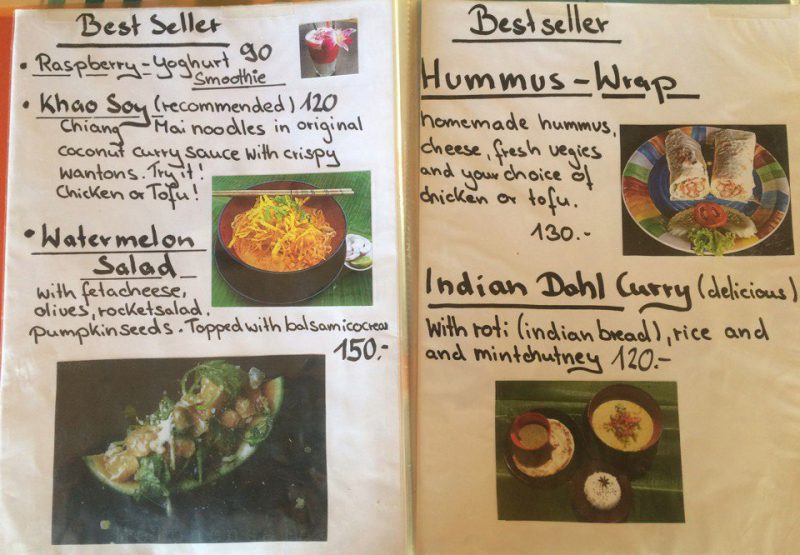 Best Seller
• Raspberry-Yoghurt 90
Smoothie
• Khao Soy (recommended) 120
Chiang Mai noodles in original
coconut curry sauce with crispy
wantons. Try it!
Chicken or Tofu!
• Watermelon
Salad
with fetacheese,
olives, rocketsalad.
pumpkinseeds. Topped with balsamicocreme
150.-
Bestseller
Hummus-Wrap
homemade hummus,
cheese, fresh vegies
and your choice of
chicken or tofu.
130.-
Indian Dahl Curry (delicious)
with roti (indian bread), rice and
and mintchutney 120.-